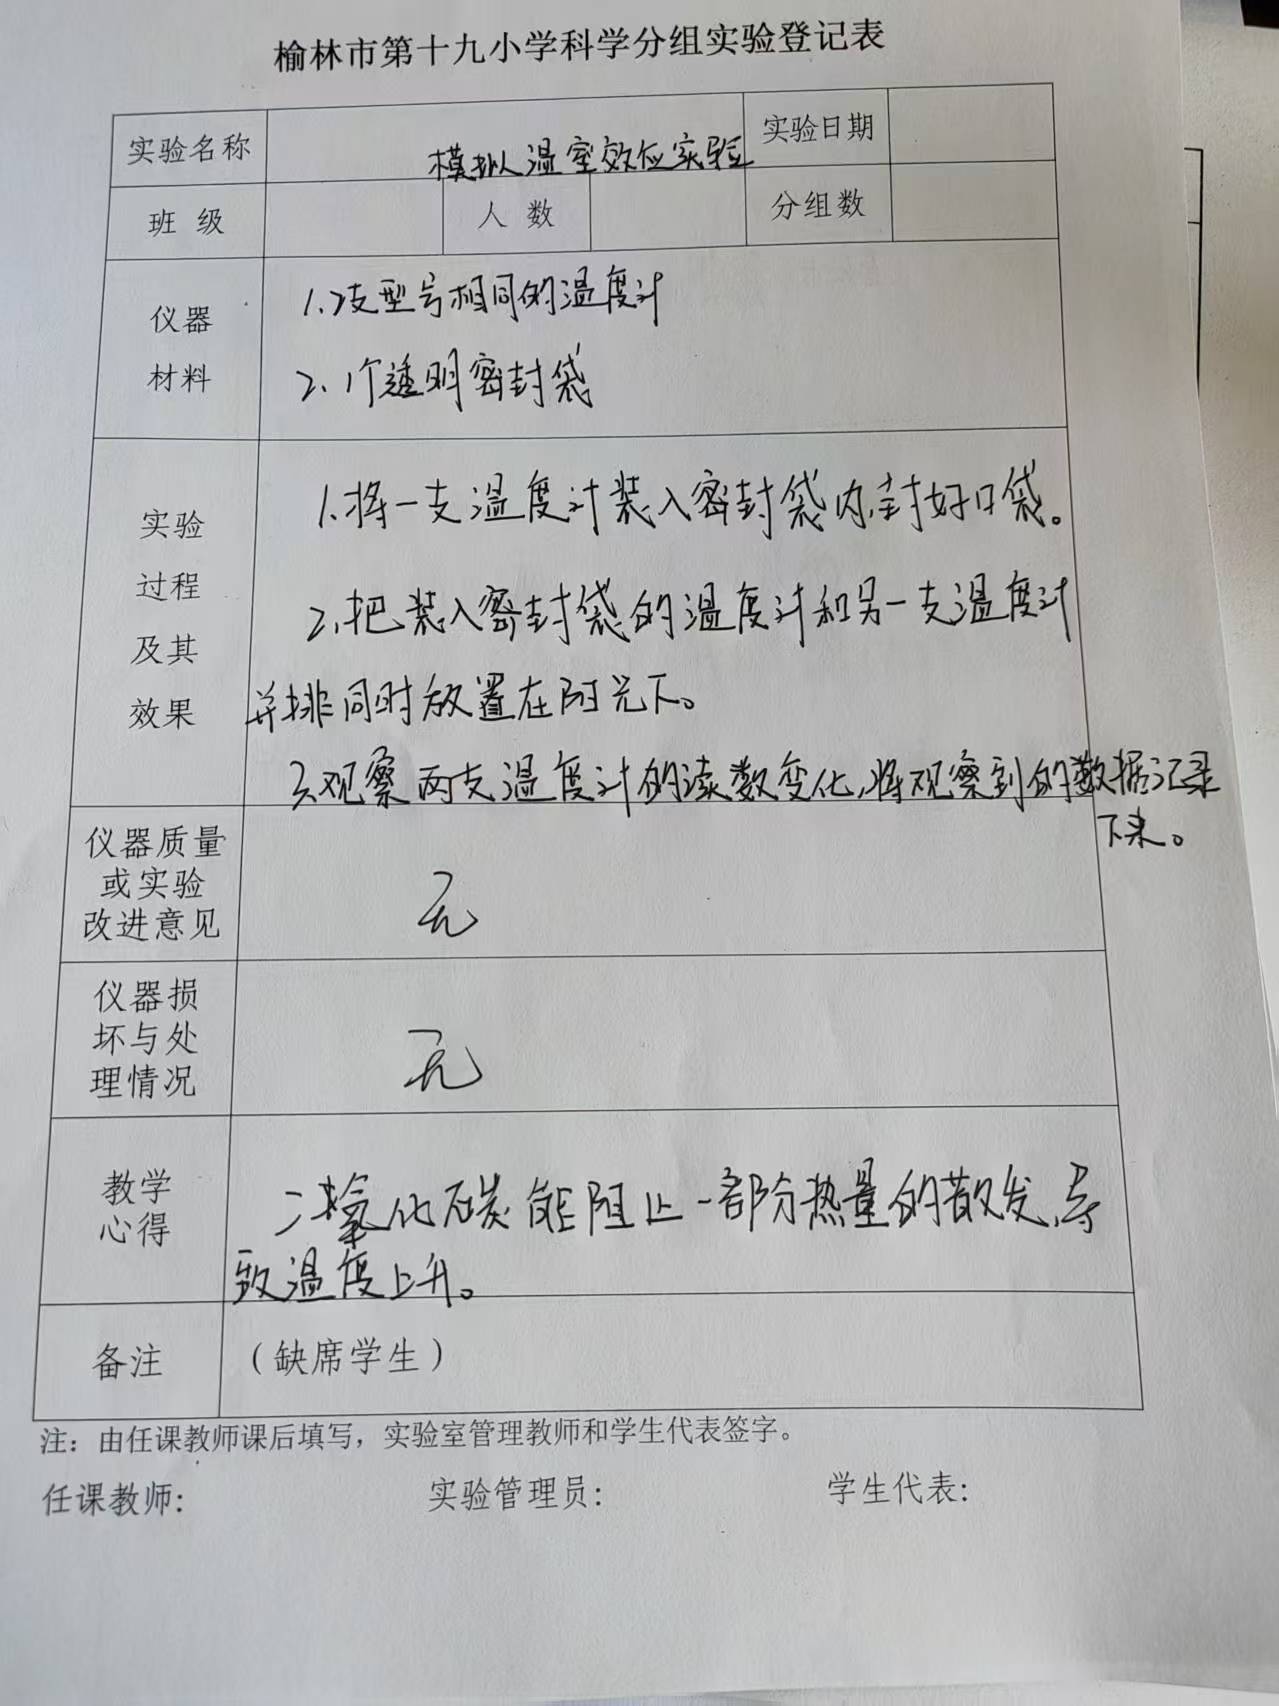 榆林市第十九小学科学分组实验登记表
实验名称 模拟温室效应实验 实验日期
班 级 人 数 分组数
仪器
材料
1.2支型号相同的温度计
2.1个透明密封袋
实验
过程
及其
效果
1.将一支温度计装入密封袋内,封好口袋。
2.把装入密封袋的温度计和另一支温度计
并排同时放置在阳光下。
3.观察两支温度计的读数变化,将观察到的数据记录
下来。
仪器质量
或实验
改进意见
无
仪器损
坏与处
理情况
无
教学
心得
二氧化碳能阻止一部分热量的散发,导
致温度上升。
备注 (缺席学生)
注:由任课教师课后填写,实验室管理教师和学生代表签字。
任课教师: 实验管理员: 学生代表: